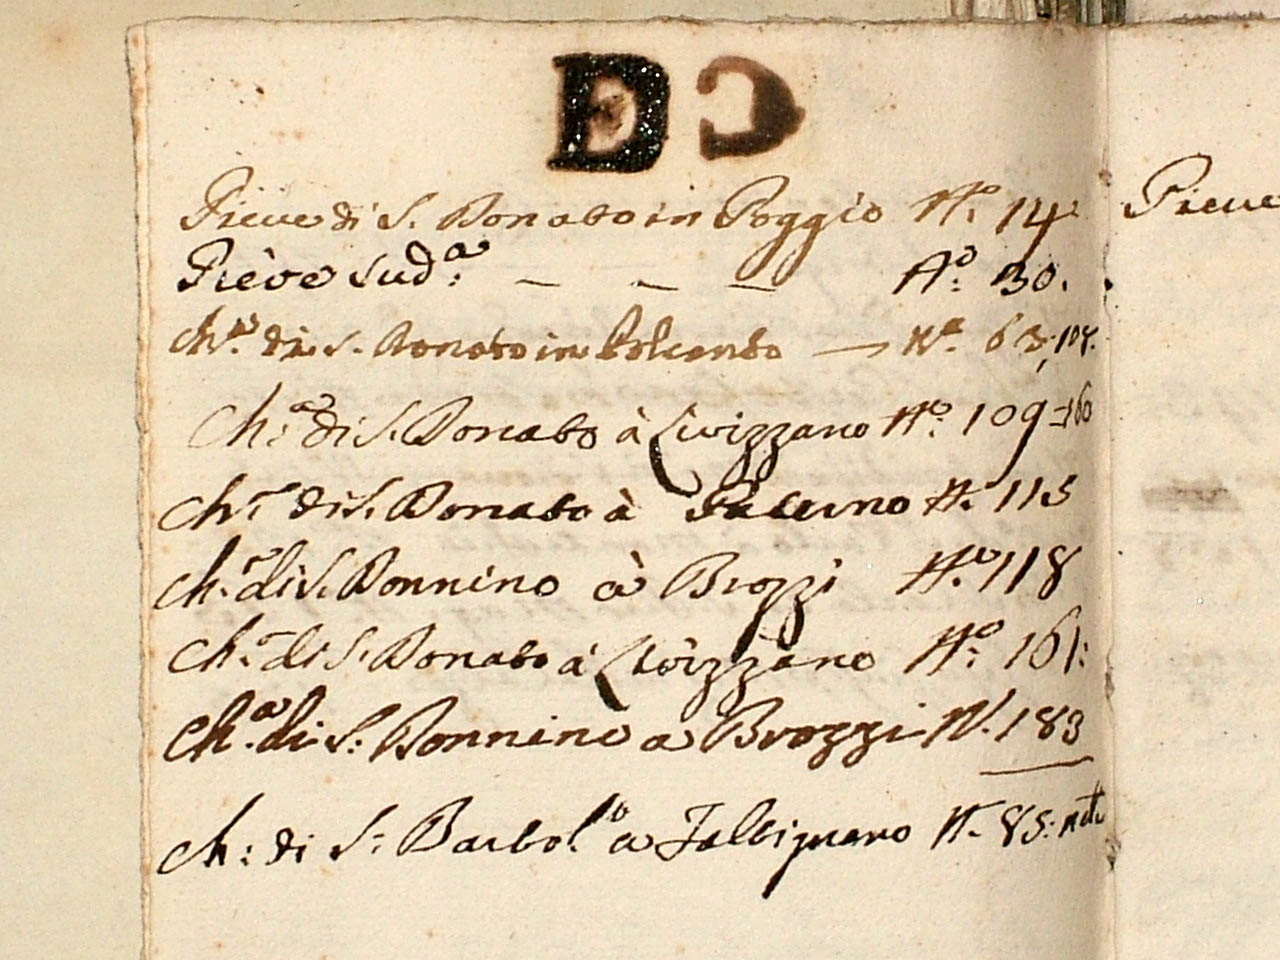 D
Pieve di S. Donato in Poggio Nº. 14
Pieve
Pieve Sudª: Nº: 30.
Chª. di S. Donato in Nª. 63.108.
Chª: di S. Donato à Livizzano Nº: 109=160
Chª di S. Donato à N. 115
Ch.ª di S. Donnino à Brozzi Nº. 118
Ch.ª di S. Donato à Livizzano Nº: 161:
Chª. di S: Donnino a Brozzi N. 183
Ch: di S: Bartolº a Falbignano N. 85: